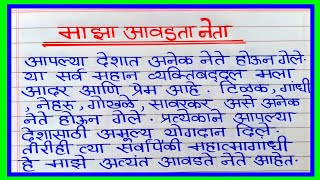 माझा आवडता नेता
आपल्या देशात अनेक नेते होऊन गेले.
या सर्व महान व्यक्तिबद्दल मला
आदर आणि प्रेम आहे. टिळक, गांधी
, नेहरू, गोखळे, सावरकर, असे अनेक
नेते होऊन गेले. प्रत्येकाने आपल्या
देशासाठी अमूल्य योगदान दिले.
तीरीही त्या सर्वापैकी महात्मागाधी
हे माझे अत्यंत आवडते नेते आहेत.